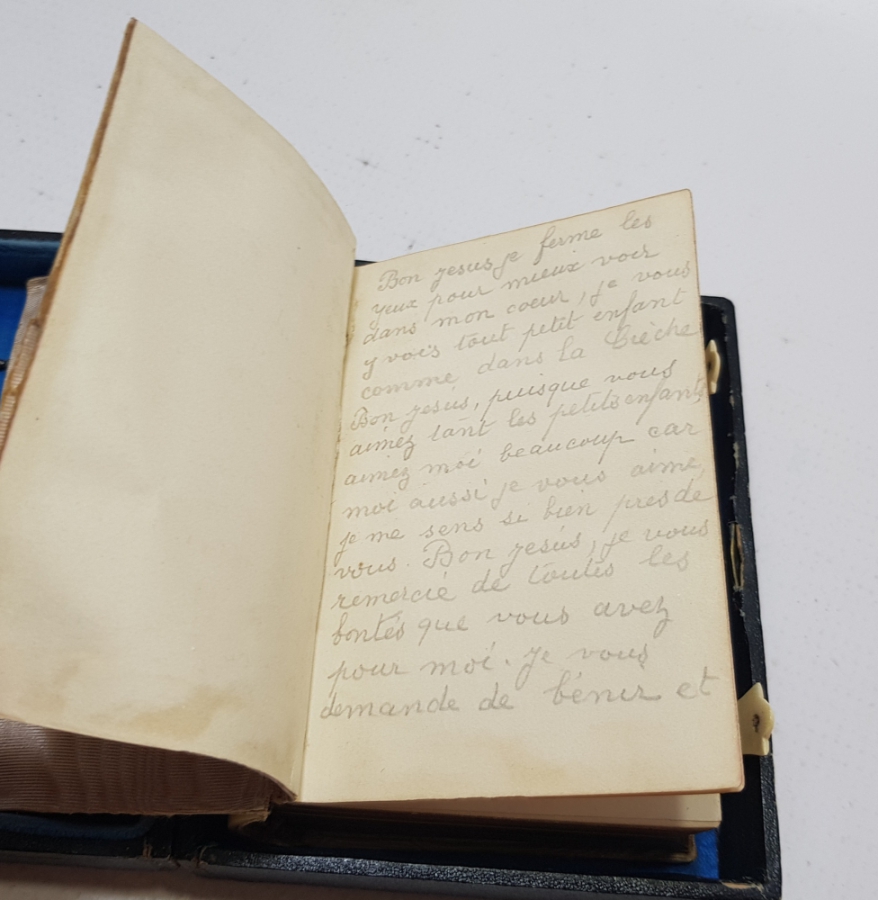 Bon Jesus je ferme les
yeux pour mieux voir
dans mon coeur, je vous
y vois tout petit enfant
comme dans la Crèche
Bon Jesus, puisque vous
aimez tant les petits enfants
aimez moi beaucoup car
moi aussi je vous aime,
je me sens si bien pres de
vous. Bon Jesus, je vous
remercie de toutes les
bontés que vous avez
pour moi. Je vous
demande de bénir et